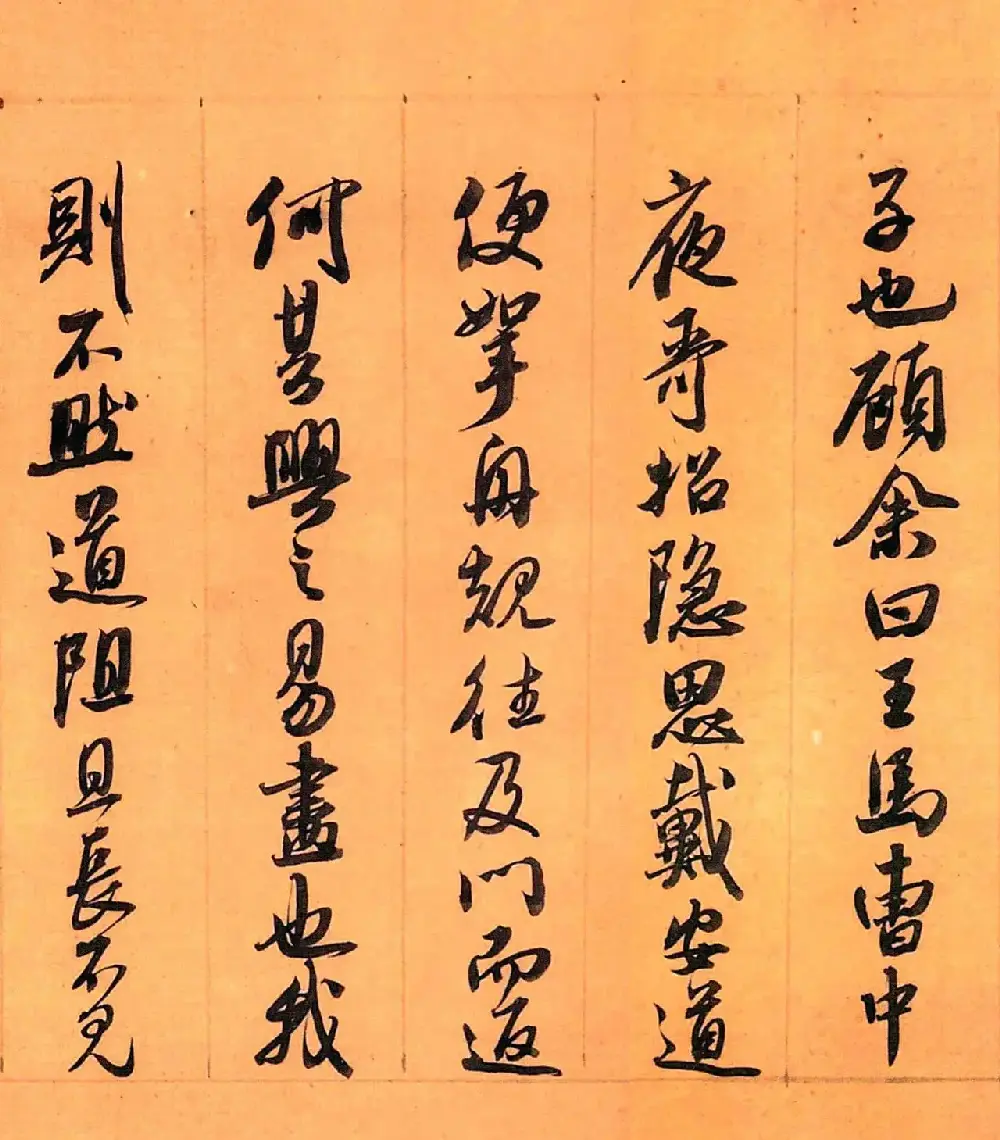 子也顧余曰王馬曹中
夜哥招隱思戴安道
便拏舟觌往及門而返
何其興之易盡也我
則不然道阻且長不見